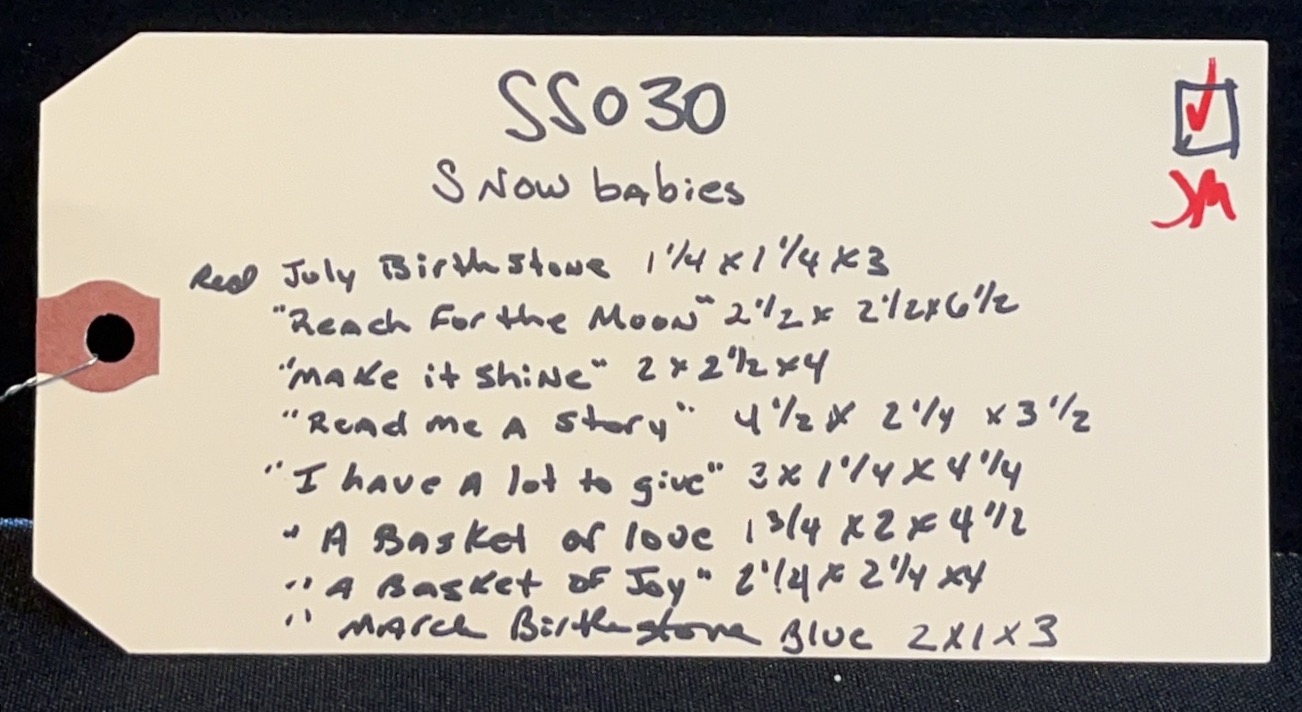 SS030
SNow babies
Red July Birthstone 1 1/4 x 1 1/4 x 3
"Reach For the Moon" 2 1/2 x 2 1/2 x 6 1/2
"Make it shiNe" 2 x 2 1/2 x 4
"Read me A story" 4 1/2 x 2 1/4 x 3 1/2
"I have A lot to give" 3 x 1 1/4 x 4 1/4
" A Basket of love 1 3/4 x 2 x 4 1/2
" A Basket of Joy" 2 1/4 x 2 1/4 x 4
" March Birthstone Blue 2 x 1 x 3